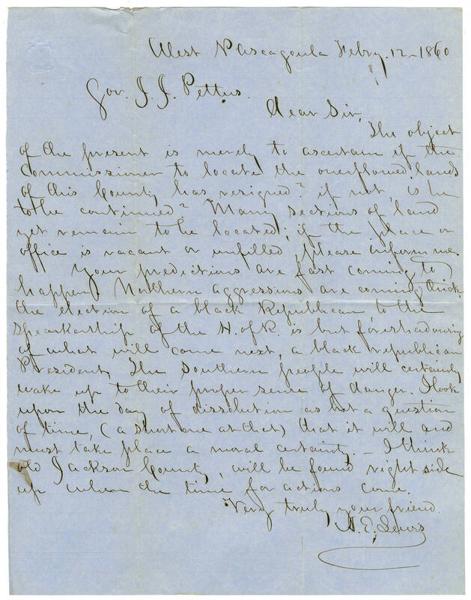 West Pascagoula Feby. 12 - 1860
Gov. J. J. Pettus.
Dear Sir,
The object
of the present is merely to ascertain if the
Commissioner to locate the overflowed lands
of this County has resigned? if not, is he
to be continued? Many sections of land
yet remain to be located; if the place or
office is vacant or unfilled, please inform me.
Your predictions are fast coming to
happen. Northern aggressions are coming thick
the election of a black Republican to the
Speakership of the H. of R. is but foreshadowing
of what will come next, a black republican
President. The Southern people will certainly
wake up to their proper sense of danger. I look
upon the day of dissolution as but a question
of time, (a short one at that) that it will and
must take place a moral certainty. - I think
old Jackson County, will be found right side
up when the time for actions come.
Very truly your friend
A. E. Lewis